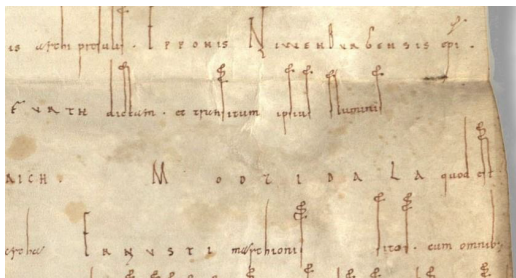 is archi presulis. EPPONIS NIVVENBVRGENSIS epi.
FVRTH dictum. et transitum ipsius fluminis
AICH. MODTIDALA quod est
ERNVSTI marchionis sitas. cum omnib;